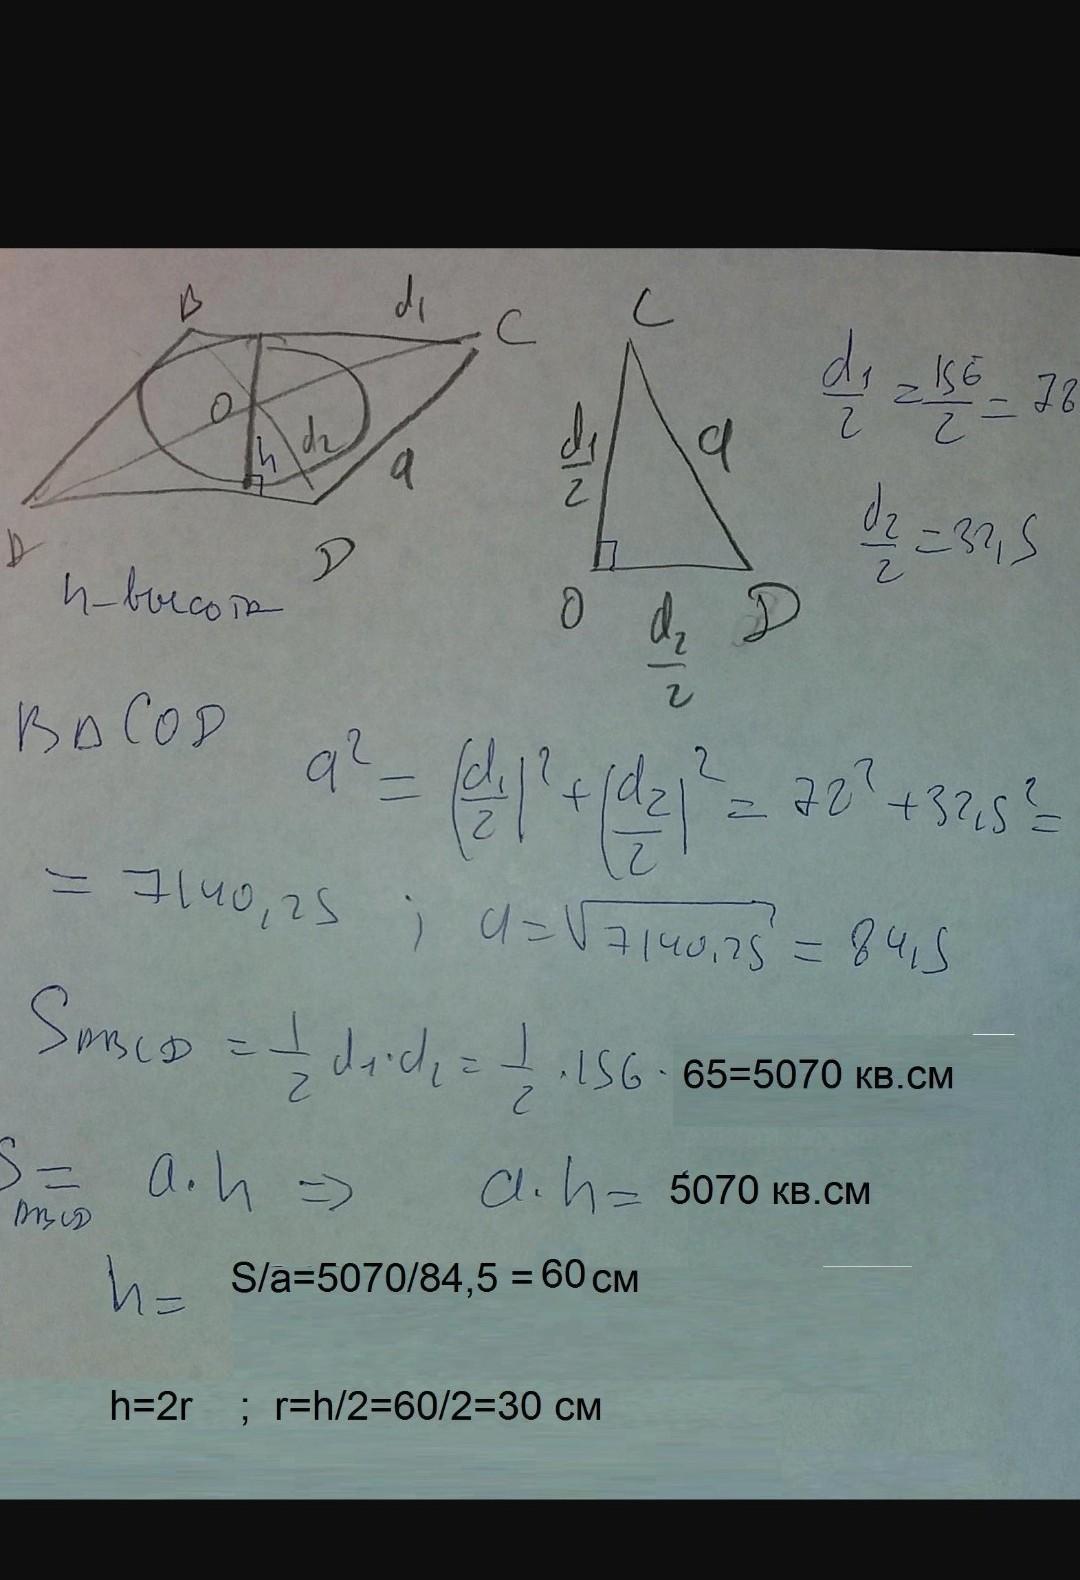 B d₁ C
O d₂ h a
A D
h - высота
C
d₁/2 a
O d₂/2 D
d₁/2 = 156/2 = 78
d₂/2 = 32,5
В Δ COD
a² = (d₁/2)² + (d₂/2)² = 78² + 32,5² =
= 7140,25 ; a = √7140,25 = 84,5
S ABCD = 1/2 d₁·d₂ = 1/2 · 156 · 65=5070 кв.см
S ABCD = a·h ⇒ a·h = 5070 кв.см
h = S/a=5070/84,5 = 60 см
h=2r ; r=h/2=60/2=30 см